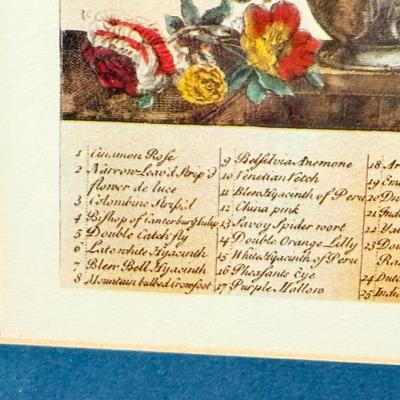 1 Cinamon Rose
2 Narrow-Leav'd Strip'd
flower de luce
3 Colombine Strip'd
4 Bishop of Canterbury tulip
5 Double Catch fly
6 Late white Hyacinth
7 Blew Bell Hyacinth
8 Mountain bulbed Crowfoot
9 Belsilvia Anemone
10 Venetian Vetch
11 Blew Hyacinth of Peru
12 China pink
13 Savoy Spider wort
14 Double Orange Lilly
15 White Hyacinth of Peru
16 Pheasants Eye
17 Purple Mallow
18 Ar
19 Em
20 Du
21 Indi
22 Yal
23 Dou
Ra
24 Dutc
25 Indi